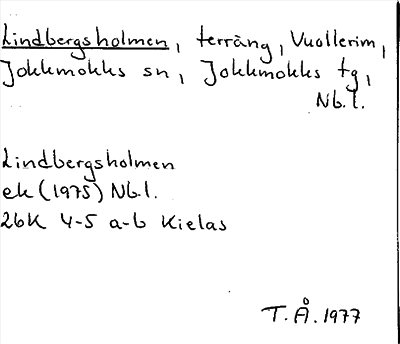 Lindbergsholmen, terräng, Vuollerim,
Jokkmokks sn, Jokkmokks tg,
Nb.l.
Lindbergsholmen
ek (1975) Nb.l.
26K 4-5 a-b Kielas
T.Å. 1977